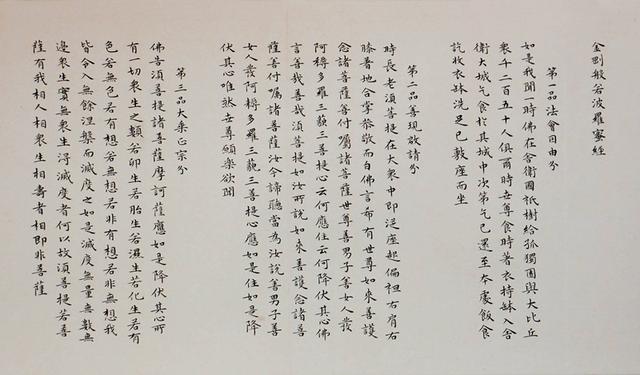 金剛般若波羅蜜經
第一品法會因由分
如是我聞一時佛在舍衛國祇樹給孤獨園與大比丘
衆千二百五十人俱爾時世尊食時著衣持缽入舍
衛大城乞食於其城中次第乞已還至本處飯食
訖收衣缽洗足已敷座而坐
第二品善現啟請分
時長老須菩提在大衆中即從座起偏袒右肩右
膝着地合掌恭敬而白佛言希有世尊如來善護
念諸菩薩善付囑諸菩薩世尊善男子善女人發
阿耨多羅三藐三菩提心云何應住云何降伏其心佛
言善哉善哉須菩提如汝所說如來善護念諸菩
薩善付囑諸菩薩汝今諦聽當為汝說善男子善
女人發阿耨多羅三藐三菩提心應如是住如是降
伏其心唯然世尊願樂欲聞
第三品大乘正宗分
佛告須菩提諸菩薩摩訶薩應如是降伏其心所
有一切衆生之類若卵生若胎生若濕生若化生若有
色若無色若有想若無想若非有想若非無想我
皆令入無餘涅槃而滅度之如是滅度無量無數無
邊衆生實無衆生得滅度者何以故須菩提若菩
薩有我相人相衆生相壽者相即非菩薩